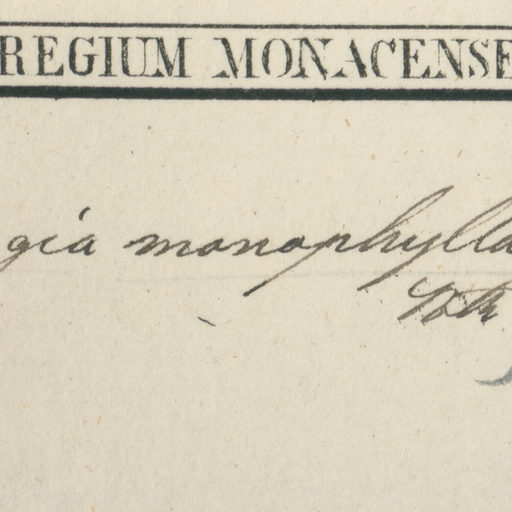 REGIUM MONACENSE
gia monophylla